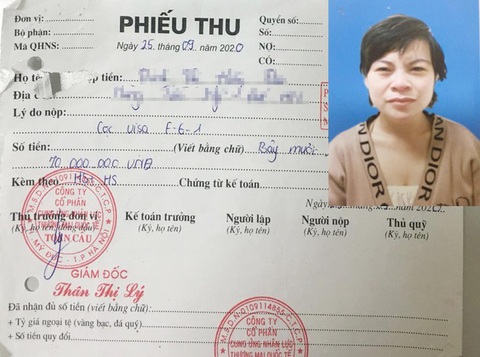 Đơn vị:
Bộ phận:
Mã QHNS:
PHIẾU THU
Ngày 25 tháng 09 năm 2020
Quyển số:
Số:
NỢ:
CÓ:
Họ tê nộp tiền:
Địa c
Lý do nộp:
Cọc visa F-6-1
Số tiền: (Viết bằng chữ) Bảy mươi
70.000.000 VNĐ
Kèm theo HS Chứng từ kế toán.
Ngày năm 202
Thủ trưởng đơn vị Kế toán trưởng Người lập Người nộp Thủ quỹ
(Ký, họ tên, đóng dấu) (Ký, họ tên) (Ký, họ tên) (Ký, họ tên) (Ký, họ tên)
CÔNG TY
CỔ PHẦN
TOÀN CẦU
MỸ ĐỨC - T.P HÀ NỘI
GIÁM ĐỐC
Thân Thị Lý
Đã nhận đủ số tiền (viết bằng chữ):
+ Tỷ giá ngoại tệ (vàng bạc, đá quý)
+ Số tiền quy đổi
CÔNG TY
CỔ PHẦN
CUNG ỨNG NHÂN LỰC
THƯƠNG MẠI QUỐC TẾ
AN DIOR
DIOR